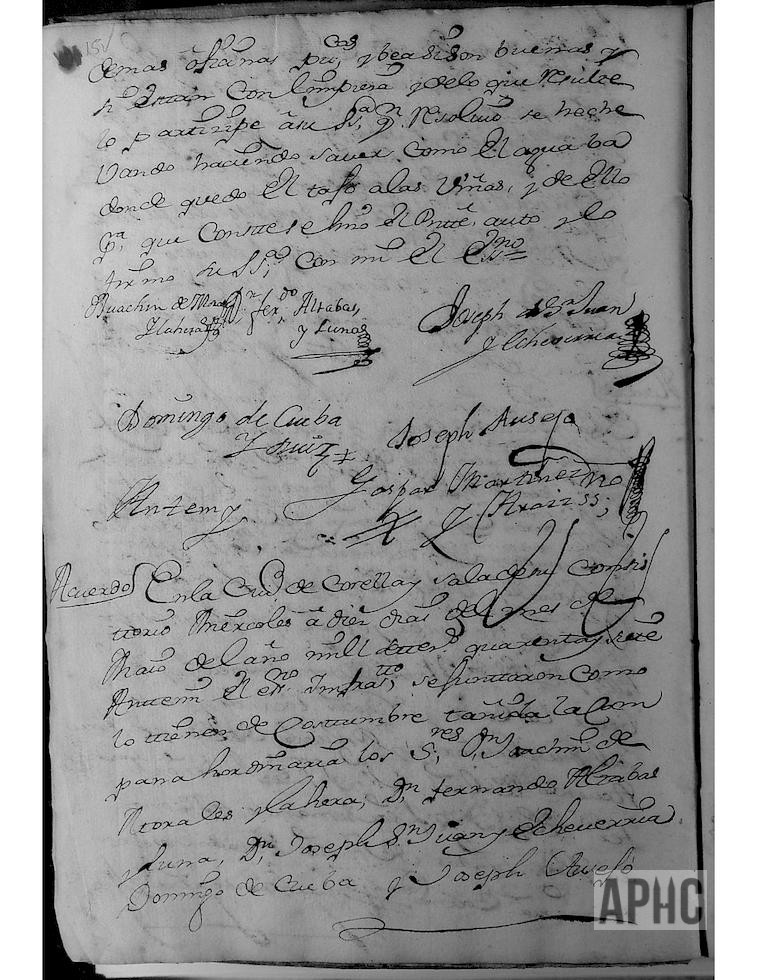 15v
demas oficinas pu.cos y vea si son buenas y
si estan con limpieza y de lo que resulte
lo partizipe â su ss.a y resolvio se heche
Vando haciendo saver como El agua ba
donde quedo El tajo a las Viñas, y de Ello
p.a que Conste se hizo El Press.te auto y lo
firmo su ss.a Con mi El ess.no
Juachin de Mora
D.n fer.do Altabas,
Joseph de S.n Juan
y Lahera
y Luna
y Echeverria
Domingo de Cueba
Joseph Ausejo
Antemy
Gaspar Martinez
y Araiz ss.no
Acuerdo En la Ciu.d de Corella y Sala de su Consis
ttorio Miercoles â diez dias del mes de
Maio de el año mill settez.s quarenta y siete
Antemi El es.no Infras.tto, se Junttaron como
lo ttienen de Costtumbre tañida la Cam
pana hordinaria los S.res D.n Joachin de
Morales y Lahera, D.n fernando Altabas
y Luna, D.n Joseph S.n Juan y Echeverria
Domingo de Cueba y Joseph Ausejo
APHC